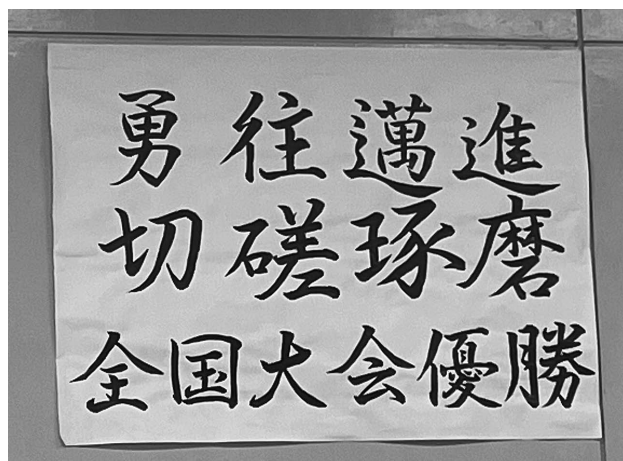 勇往邁進
切磋琢磨
全国大会優勝